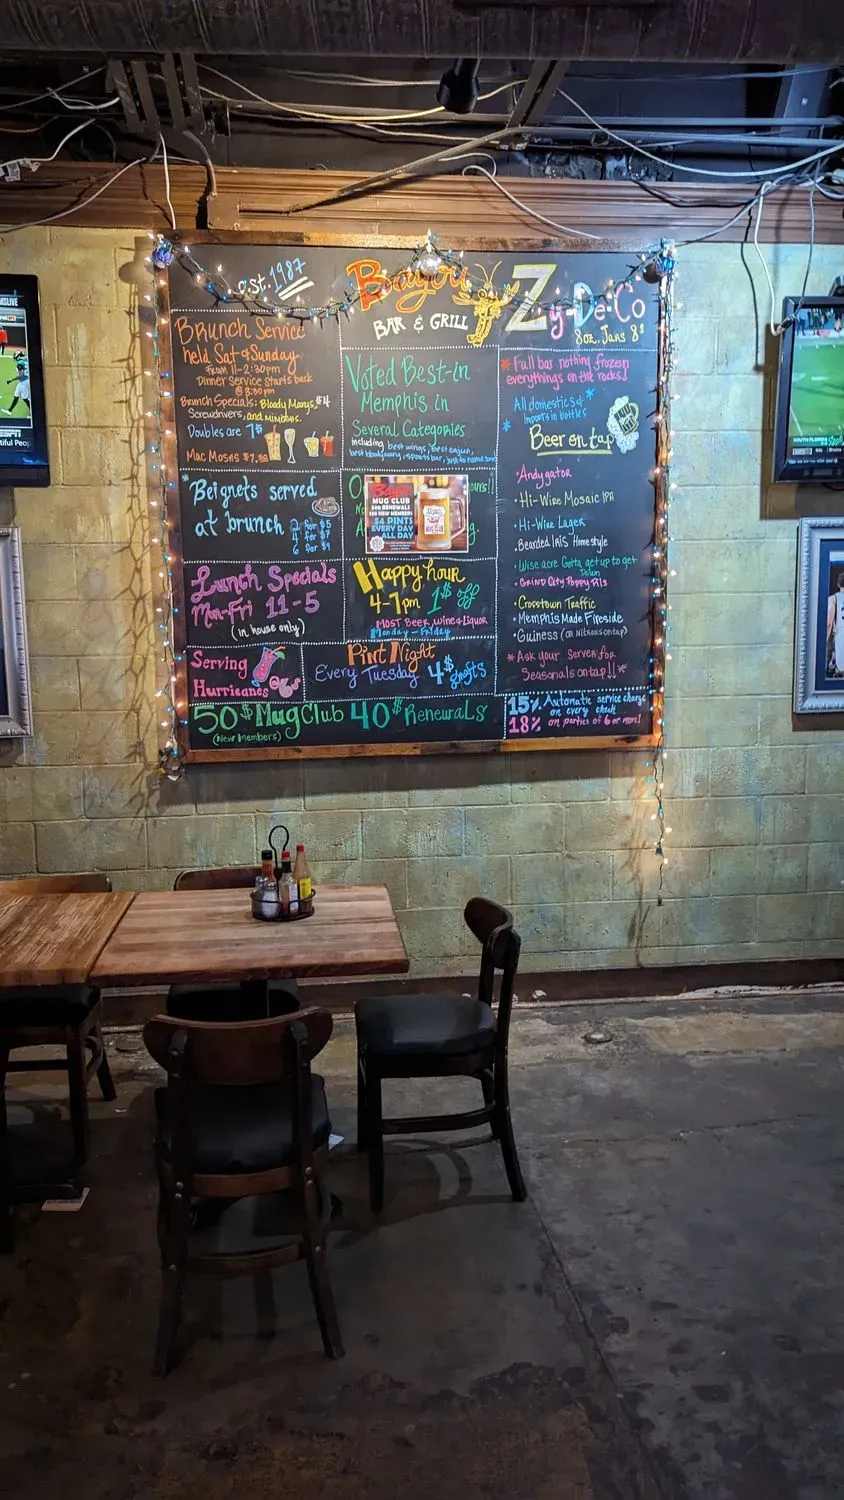 est. 1987
Bayou
BAR & GRILL
Zy-De-Co
8oz. Jars 8$
Brunch Service
held Sat & Sunday
FROM 11-2:30pm
Dinner Service Starts back
@ 3:30pm
Brunch Specials: Bloody Marys, $4
Screwdrivers, and Mimosas.
Doubles are 7$
Mac Mosas $7.50
*Beignets served
at brunch
2 for $5
4 for $7
6 for $9
Lunch Specials
Mon-Fri 11-5
(in house only)
Serving
Hurricanes
50$ Mug Club 40$ Renewals
(New Members)
Voted Best-in
Memphis in
Several Categories
including best wings, Best cajun,
best bloody mary, sports bar,
O
ours!!
Bayou
MUG CLUB
$40 RENEWALS
$50 NEW MEMBERS
$4 PINTS
EVERY DAY
ALL DAY
g.
Happy hour
4-7pm 1$ off
MOST Beer, Wine & Liquor
Monday - Friday
Pint Night
Every Tuesday 4$ Drafts
*Full bar nothing frozen
everythings on the rocks!
* All domestics &
* Imports in bottles
Beer on tap
• Andygator
• Hi-Wire Mosaic IPA
• Hi-Wire Lager
• Bearded IRIS Homestyle
• Wise acre Gotta get up to get
Down
• Grind City Poppy Pils
• Crosstown Traffic
• Memphis Made Fireside
• Guiness (on Nitrous on tap)
* Ask your Server for
Seasonals on tap!! *
15% Automatic service charge
on every check
18% on parties of 6 or more!
ESPN
tiful Peo
SOUTH FLORIDA